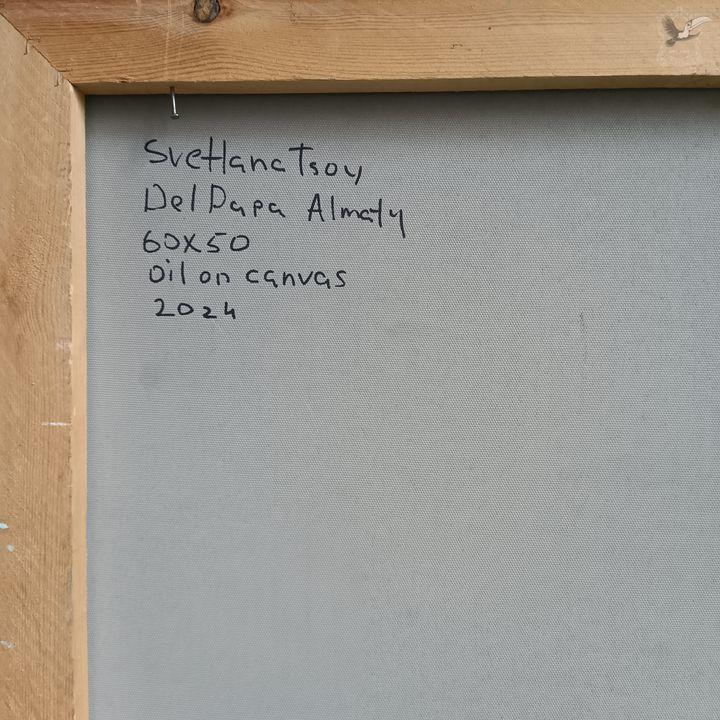 Svetlana Tsoy
Del Papa Almaty
60x50
oil on canvas
2024